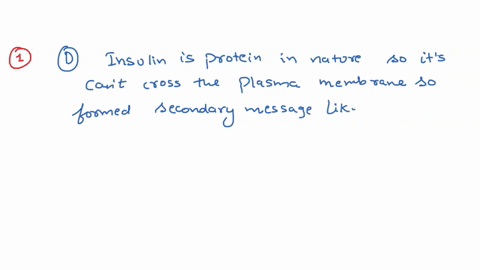 1 D Insulin is protein in nature so it's
can't cross the plasma membrane so
formed secondary message lik.